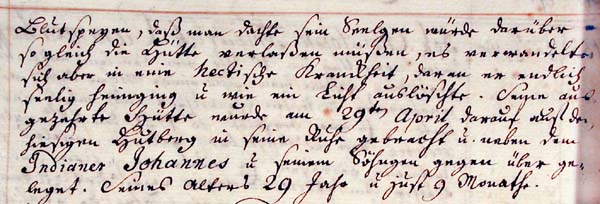 Blutspeyen, daß man dachte sein Seelgen würde darüber
so gleich die Hütte verlaßen müßen, es verwandelte
sich aber in eine hectische Krankheit, daran er endlich
seelig heimging u. wie ein Licht auslöschte. Seine aus
gezehrte Hütte wurde am 29ten April darauf auf den
hiesigen Hutberg in seine Ruhe gebracht u. neben dem
Indianer Johannes u. seinem Söhngen gegen über ge-
leget. Seines Alters 29 Jahr u. just 9 Monathe.